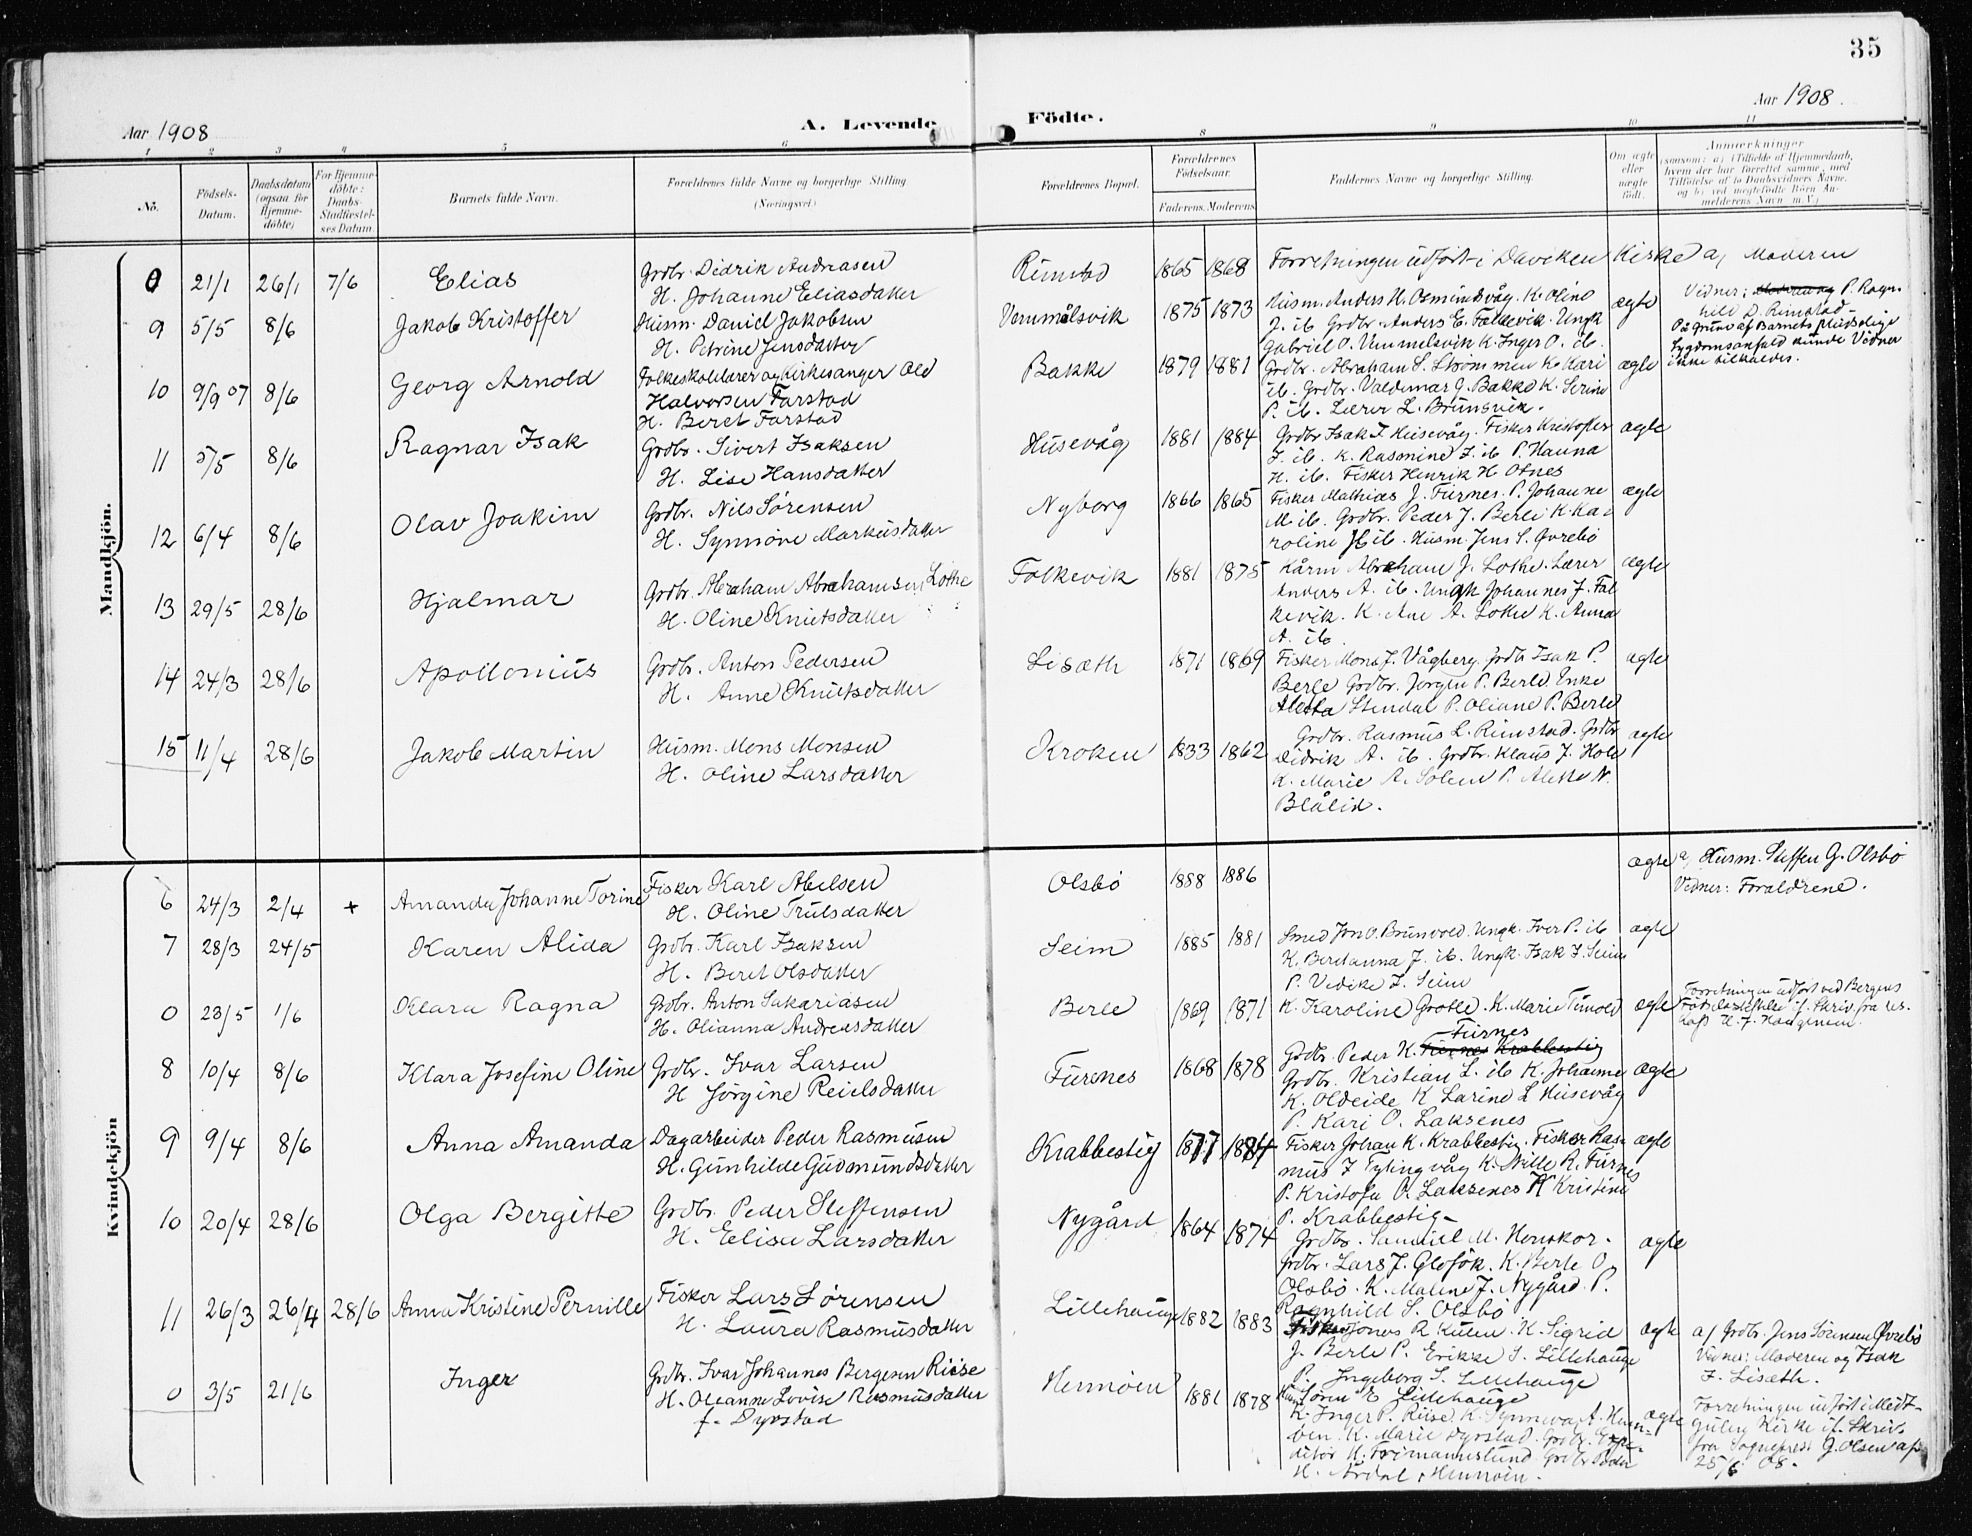 35
Aar 1908
A. Levende Födte.
Aar 1908.
1 2 3 4 5 6 8 9 10 11
No.
Födsels-Datum.
Daabsdatum (ogsaa for Hjemme-döbte)
For Hjemme-döbte: Daabs-Stadfæstel-ses Datum.
Barnets fulde Navn.
Forældrenes fulde Navne og borgerlige Stilling (Næringsvei.)
Forældrenes Bopæl.
Forældrenes Födselsaar.
Faderens. Moderens
Faddernes Navne og borgerlige Stilling.
Om ægte eller uægte födt.
Anmærkninger
(saasom: a) i Tilfælde af Hjemmedaab, hvem der har forrettet samme, med Tilföielse af to Daabsvidners Navne, og b) ved uegtefödte Börn Anmelderens Navn m.V.)
Mandkjön.
0 21/1 26/1 7/6 Elias
Grdbr. Didrik Andreasen
H. Johanne Eliasdatter
Rimstad 1865 1868
Forretningen udført i Daviken Kirke
a, Moderen
Vidner: P. Ragn-
hild D. Rimstad-
På grund af Barnets pludselige
Sygdomsanfald kunde Vidner
ikke tilkaldes.
9 5/5 8/6 Jakob Kristoffer
Husm. Daniel Jakobsen
H. Petrine Jensdatter
Vemmelsvik 1875 1873
Husm. Anders H. Osmundsvåg. K. Oline
J. ib. Grdbr. Anders E. Falkevik. Ungk
Gabriel O. Vemmelsvik K. Inger O. ib.
ægte
10 9/9 07 8/6 Georg Arnold
Folkeskolelærer og Kirkesanger Ole
Halvorsen Farstad
H. Beret Farstad
Bakke 1879 1881
Grdbr. Abraham S. Strømmen K. Kari
ib. Grdbr. Valdemar G. Bakke K. Serine
P. ib. Lærer L. Brunsvik.
ægte
11 5/5 8/6 Ragnar Isak
Grdbr. Sivert Isaksen
H. Lise Hansdatter
Husevåg 1881 1884
Grdbr Isak I. Husevåg. Fisker Kristoffer
I. ib. K. Rasmine I. ib P. Hanna
H. ib. Fisker Henrik H Otnes
ægte
12 6/4 8/6 Olav Joakim
Grdbr. Nils Sørensen
H. Synnøve Markusdatter
Nyborg 1866 1865
Fisker Mathias J. Furnes. P. Johanne
M ib. Grdbr. Peder J. Berle K Ka-
roline H ib. Husm. Jens S. Øvrebø
ægte
13 29/5 28/6 Hjalmar
Grdbr. Abraham Abrahamsen Lothe
H. Oline Knutsdatter
Falkevik 1881 1875
Kårm Abraham J. Lothe. Lærer
Anders A. ib. Ungk Johannes J. Fal
kevik. K. Ane A. Lothe K. Anna
A. ib.
ægte
14 24/3 28/6 Apollonius
Grdbr. Anton Pedersen
H. Anne Knutsdatter
Lisæth 1871 1869
Fisker Mons J. Vågberg. Grdbr Isak P.
Berle Grdbr. Jørgen P. Berle Enke
Aletta Stendal P. Oliane P. Berle
ægte
15 11/4 28/6 Jakob Martin
Husm. Mons Monsen
H. Oline Larsdatter
Kroken 1833 1862
Grdbr. Rasmus L. Rimstad. Grdbr
Didrik A. ib. Grdbr. Klaus J. Hole
K. Marie A. Solem P. Alette N.
Blålid.
ægte
Kvindekjön
6 24/3 2/4 + Amanda Johanne Torine
Fisker Karl Abelsen
H. Oline Trulsdatter
Olsbö 1888 1886
ægte
a, Husm. Steffen G. Olsbö
Vidner: Forældrene.
7 28/3 24/5 Karen Alida
Grdbr. Karl Isaksen
H. Beret Olsdatter
Seim 1885 1881
Smed Jon O. Brunvold. Ungk. Iver P. ib
K. Beretanna J. ib. Ungk. Isak I. Seim
P. Vedike I. Seim
ægte
0 23/5 1/6 Klara Ragna
Grdbr. Anton Sakariasen
H. Olianna Andreasdatter
Berle 1869 1871
K. Karoline Grotle. K. Marie Tunold
ægte
Forretningen udført ved Bergens
Fødselsstiftelse if. Skriv. fra
H. J.
8 10/4 8/6 Klara Josefine Oline
Grdbr. Ivar Larsen
H Jørgine Reielsdatter
Furnes 1868 1878
Furnes
Grdbr. Peder K. Furnes Krabbestig
Grdbr. Kristian L. ib K. Johanne
K. Oldeide K Larine L Husevåg
P. Kari O. Laksenes
ægte
9 9/4 8/6 Anna Amanda
Dagarbeider Peder Rasmusen
H. Gunhilde Gudmundsdatter
Krabbestig 1877 1874
Fisker Johan K. Krabbestig. Fisker Ras-
mus J Tytingvåg K. Nille R. Furnes
P. Kristofa O. Laksenes K Kristine
P. Krabbestig-
ægte
10 20/4 28/6 Olga Bergitte
Grdbr. Peder Steffensen
H. Elise Larsdatter
Nygård 1864 1874
Grdbr. Samuel M. Henskor.
Grdbr. Lars J. Glofök. K. Berte O
Olsbö. K. Maline J. Nygård. P.
Ragnhild S. Olsbö
ægte
11 26/3 26/4 28/6 Anna Kristine Pernille
Fisker Lars Sørensen
H. Laura Rasmusdatter
Lillehauge 1882 1883
Fisker Jonas R Kulen. K. Sigrid
J. Berle P. Erikke S. Lillehauge
P. Ingeborg S. Lillehauge
Husm Søren E Lillehauge
ægte
a/ Grdbr. Jens Sørensen Øvrebö
Vidner: Moderen og Isak
I. Lisæth.
0 3/5 21/6 Inger
Grdbr. Ivar Johannes Bergesen Riise
H. Oleanne Lovise Rasmusdatter
f. Dyrstad
Hennöen 1881 1878
K. Inger P. Riise. K. Synneva A. Henn-
öen. K. Marie Dyrstad. Grdbr. Expe-
ditör K. Frimannslund Grdbr Peder
H. Årdal, Hennöen.
ægte
Forretningen udført i Midt-
gulen Kirke if. Skriv.
fra Sogneprest G. Olsen af
25/6 08.